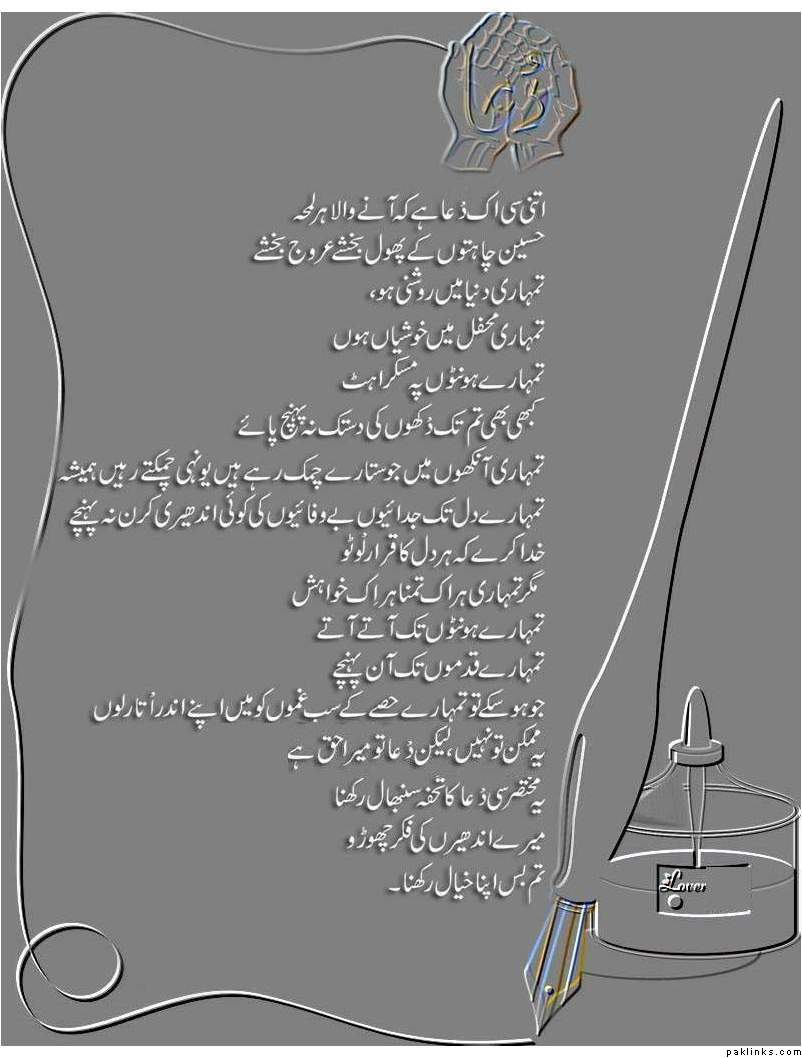 دعا
اتنی سی اک دُعا ہے کہ آنے والا ہر لمحہ
حسین چاہتوں کے پھول بخشے عروج بخشے
تمہاری دنیا میں روشنی ہو،
تمہاری محفل میں خوشیاں ہوں
تمہارے ہونٹوں پہ مسکراہٹ
کبھی بھی تم تک دُکھوں کی دستک نہ پہنچ پائے
تمہاری آنکھوں میں جو ستارے چمک رہے ہیں یونہی چمکتے رہیں ہمیشہ
تمہارے دل تک جدائیوں بے وفائیوں کی کوئی اندھیری کرن نہ پہنچے
خدا کرے کہ ہر دل کا قرار لُوٹو
مگر تمہاری ہر اک تمنا ہر اِک خواہش
تمہارے ہونٹوں تک آتے آتے
تمہارے قدموں تک آن پہنچے
جو ہو سکے تو تمہارے حصے کے سب غموں کو میں اپنے اندر اُتار لوں
یہ ممکن تو نہیں، لیکن دُعا تو میرا حق ہے
یہ مختصر سی دُعا کا تحفہ سنبھال رکھنا
میرے اندھیرں کی فکر چھوڑو
تم بس اپنا خیال رکھنا۔
Lover
paklinks.com